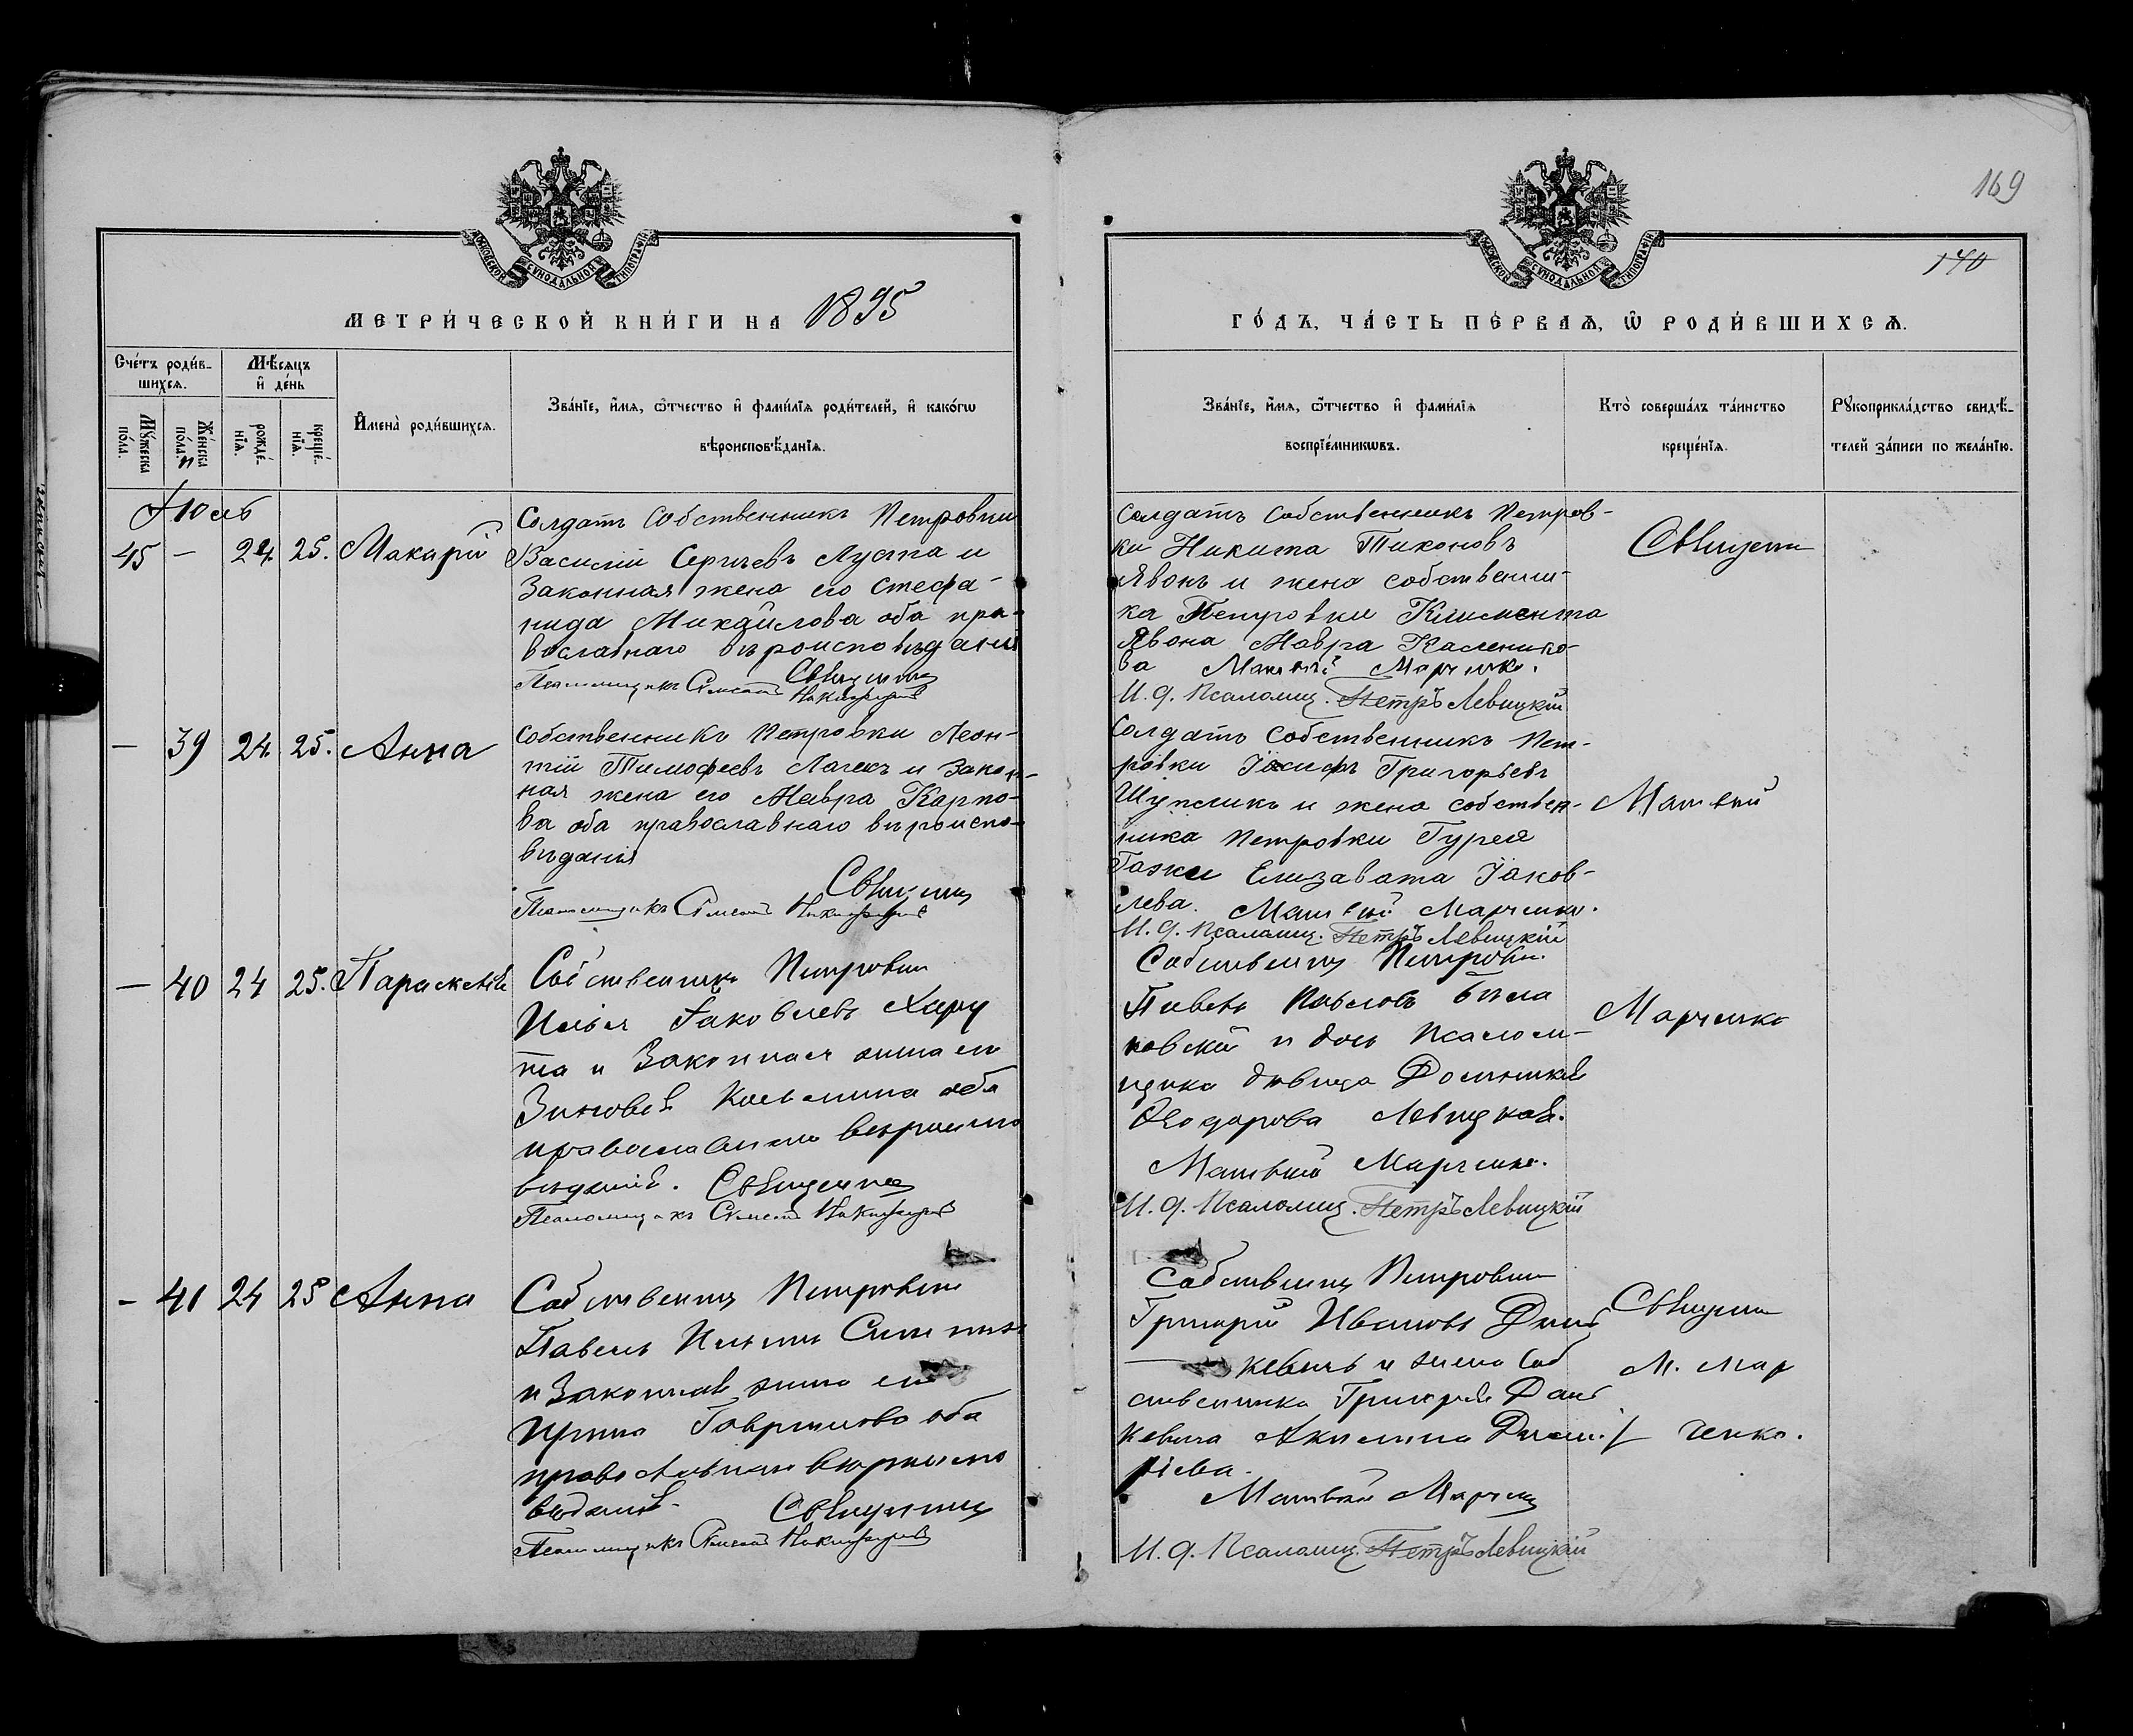 169
140
МОСКОВСКОЙ СѴНОДАЛЬНОЙ ТИПОГРАФІИ
МОСКОВСКОЙ СѴНОДАЛЬНОЙ ТИПОГРАФІИ
МЕТРИ́ЧЕСКОЙ КНИ́ГИ НА 1895
ГО́ДЪ, ЧА́СТЬ ПЕ́РВАѦ, Ѿ РОДИ́ВШИХСѦ.
Сче́тъ роди́в-
шихсѧ.
Мѣ́сѧцъ
и҆ де́нь
Мꙋ́жеска
по́ла.
Же́нска
по́ла.
рожде́-
нїѧ.
креще́-
нїѧ.
И҆мена̀ роди́вшихсѧ.
Зва́нїе, и҆́мѧ, ѻ҆́тчество и҆ фами́лїѧ роди́телей, и҆ како́гѡ
вѣроисповѣ́данїѧ.
Зва́нїе, и҆́мѧ, ѻ҆́тчество и҆ фами́лїѧ
воспрїе́мникѡвъ.
Кто̀ соверша́лъ та́инство
креще́нїѧ.
Рꙋкоприкла́дство свидѣ́-
телей за́писи по жела́нїю.
45 — 24 25. Макарій
Солдатъ Собственникъ Петровки
Василій Сергіевъ Луста и
Законная жена его Стефа-
нида Михайлова оба пра-
вославнаго вѣроисповѣданія
Священникъ
Псаломщикъ Симеонъ
Солдатъ Собственникъ Петров-
ки Никита Тихоновъ
Явонъ и жена собственни-
ка Петровки Климента
Явона Мавра Каленико-
ва Матвѣй Марченко.
И. д. Псаломщ. Петръ Левицкій
Священ
— 39 24 25. Анна
Собственникъ Петровки Леон-
тій Тимофеевъ Лагекъ и закон-
ная жена его Мавра Карпо-
ва оба православнаго вѣроиспо-
вѣданія
Священникъ
Псаломщикъ Симеонъ
Солдатъ Собственникъ Пет-
ровки Іосифъ Григорьевъ
Шупликъ и жена собствен-
ника Петровки Гурея
Гажи Елизавета Іаков-
лева. Матвѣй Марченко.
И. д. Псаломщ. Петръ Левицкій
Матвѣй
— 40 24 25. Параскева
Собственникъ Петровки
Илья Іаковлевъ Хару
та и Законная жена его
Зиновія Косьмина оба
православнаго вѣроиспо
вѣданія. Священникъ
Псаломщикъ Симеонъ
Собственникъ Петровки
Павелъ Павловъ Била
новскій и дочь Псалом-
щика дѣвица Домникія
Ѳеодорова Левицкая.
Матвѣй Марченко.
И. д. Псаломщ. Петръ Левицкій
Марченко
— 41 24 25 Анна
Собственникъ Петровки
Павелъ Ильинъ
и Законная жена его
Ирина Гаврилова оба
православнаго вѣроиспо
вѣданія. Священникъ
Псаломщикъ Симеонъ
Собственникъ Петровки
Григорій Ивановъ
кевичъ и жена Соб
ственника Григорія
кевича Акилина
ріева.
Матвѣй Марченко
И. д. Псаломщ. Петръ Левицкій
Священ
М. Мар
ченко.